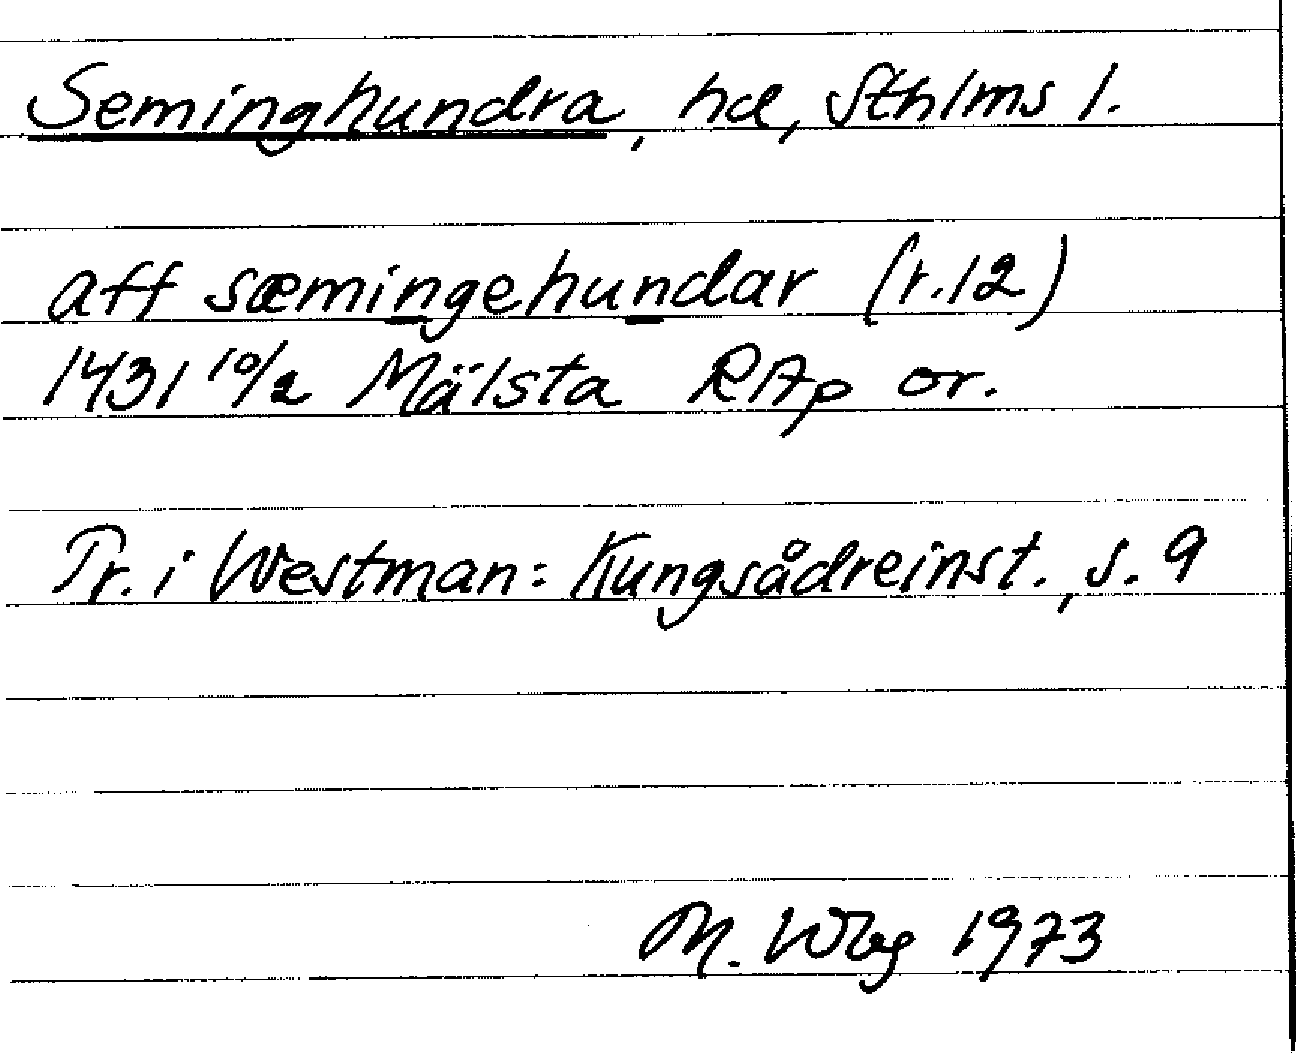 Seminghundra, hd, Sthlms l.
aff sæmingehundar (r.12)
1431 10/2 Mälsta RAp or.
Tr. i Westman: Kungsådreinst., s. 9
M. Wbg 1973